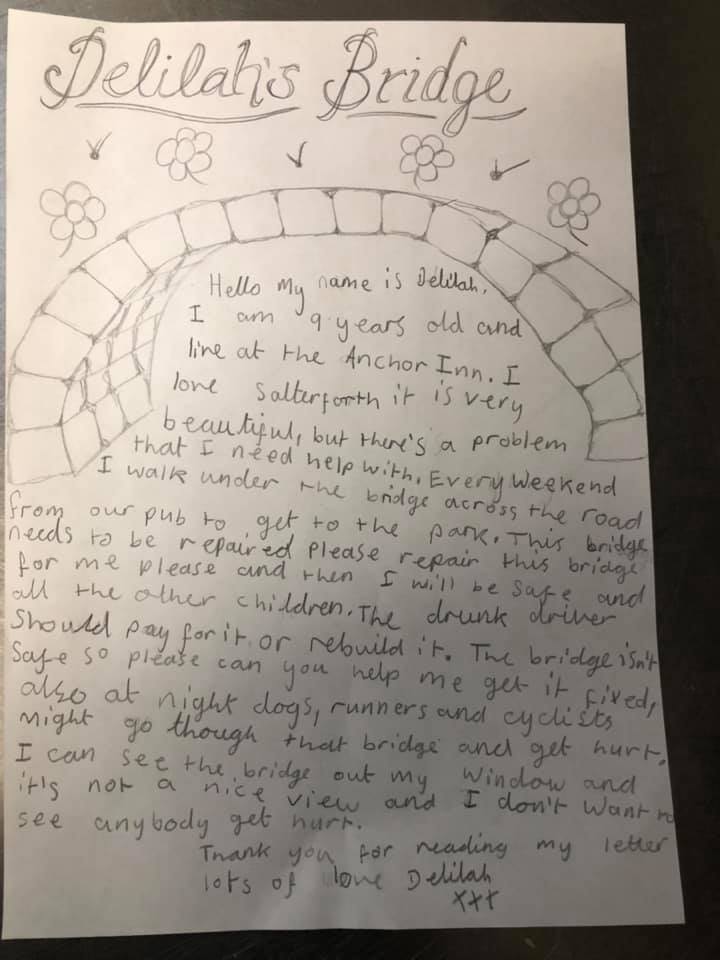 Delilah's Bridge
Hello My name is Delilah.
I am 9 years old and
live at the Anchor Inn. I
love Salterforth it is very
beautiful, but there's a problem
that I need help with. Every Weekend
I walk under the bridge across the road
from our pub to get to the park. This bridge
needs to be repaired please repair this bridge
for me please and then I will be safe and
all the other children. The drunk driver
should pay for it or rebuild it. The bridge isn't
safe so please can you help me get it fixed,
also at night dogs, runners and cyclists
might go though that bridge and get hurt.
I can see the bridge out my window and
it's not a nice view and I don't want to
see anybody get hurt.
Thank you for reading my letter
lots of love Delilah
xxx